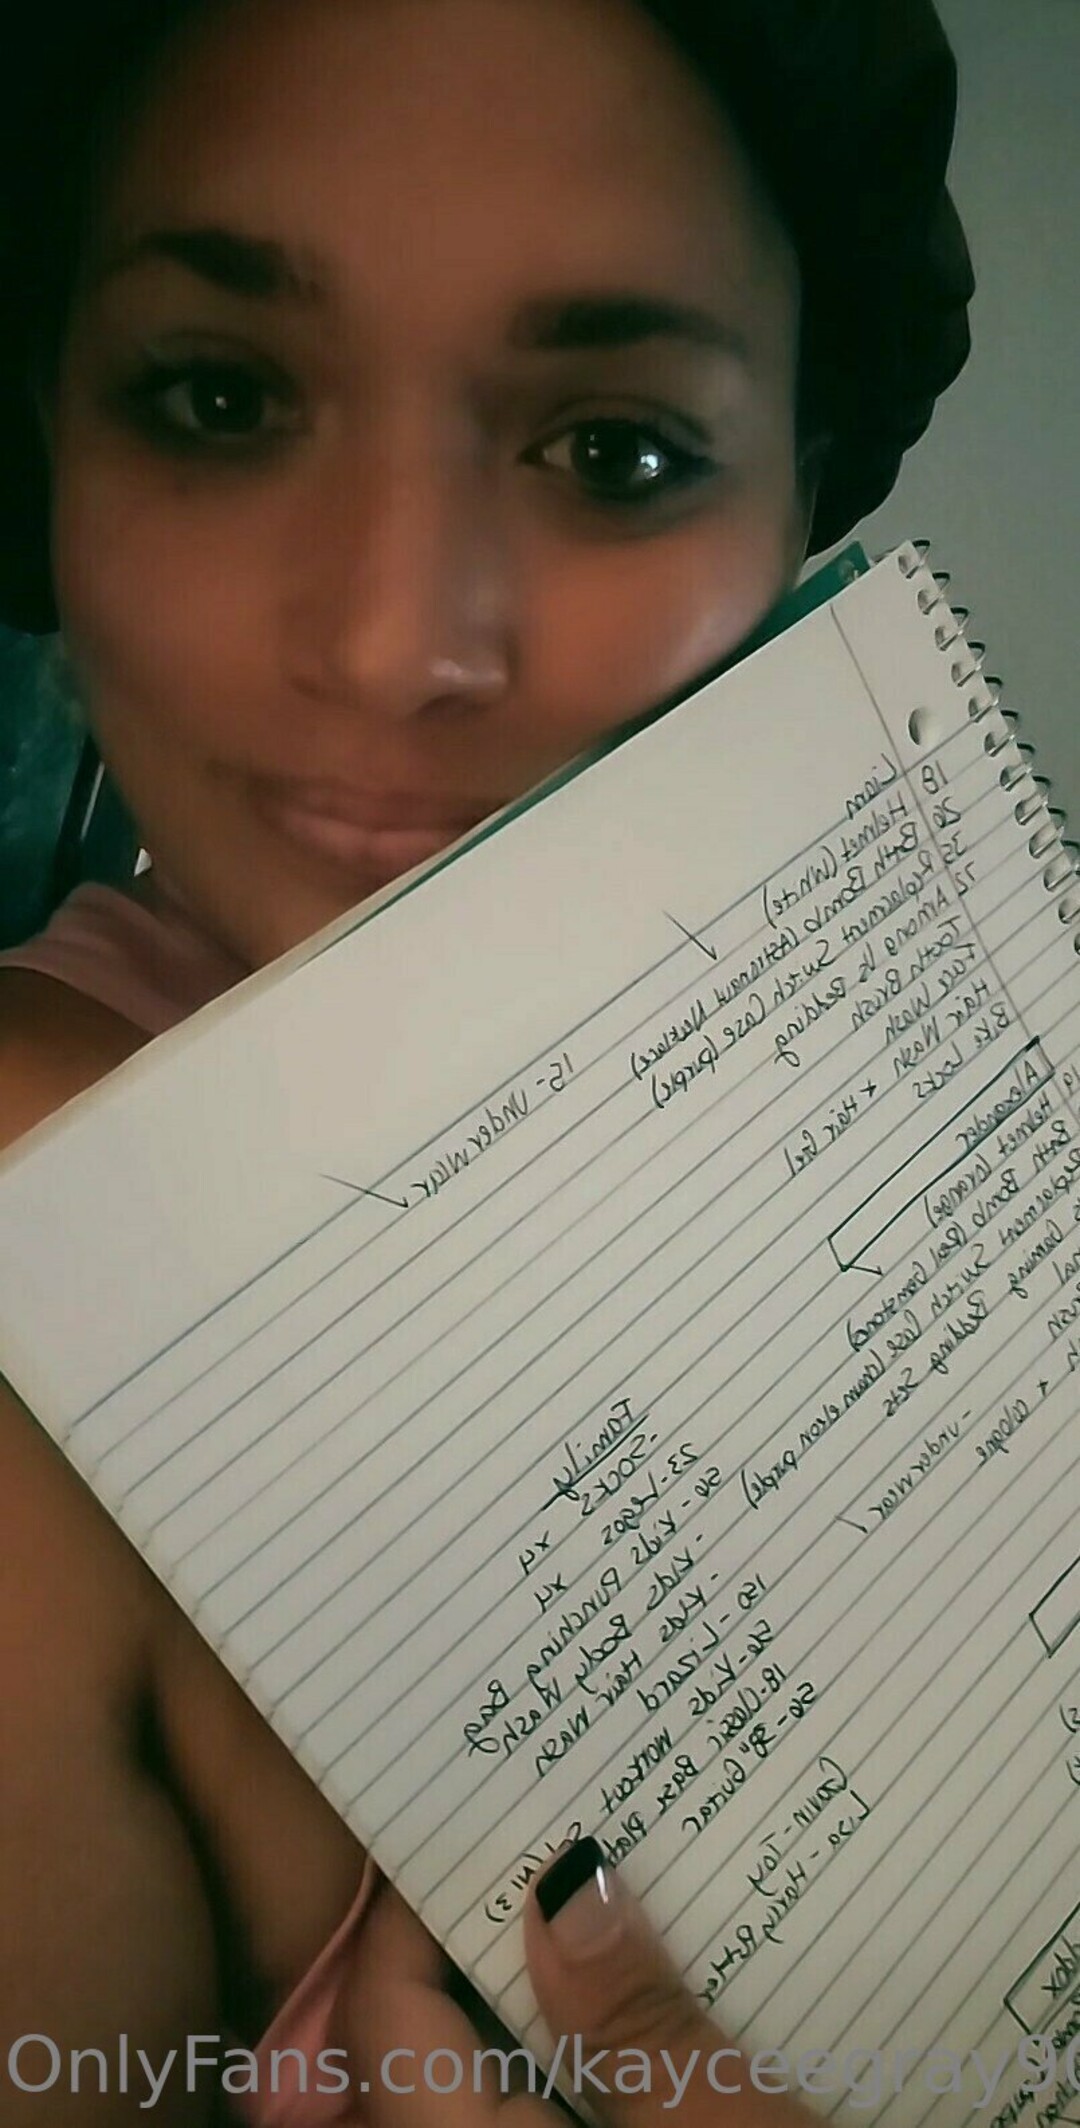 Liam
18 Helmet (White)
26 Bath Bomb (Astronaut Necklace)
35 Replacement Switch Case (purple)
72 Among Us Bedding
Tooth Brush
Face Wash
Hair Wash + Hair Gel
Bike Locks
15 - Underwear
Alexander
19 Helmet (orange)
Bath Bomb (Real Gemstone)
Replacement Switch Case
Gaming Bedding Sets
+ cologne
- underwear
Family
- Socks x4
23 - Legos x4
50 - Kids Punching Bag
- Kids Body Wash
- Kids Hair Wash
150 - Lizard
50 - Kids Workout
18 - Classic Base Plat
50 - 38" Guitar
Gavin - Toy
Lisa - Harry Potter
OnlyFans.com/kayceegray90